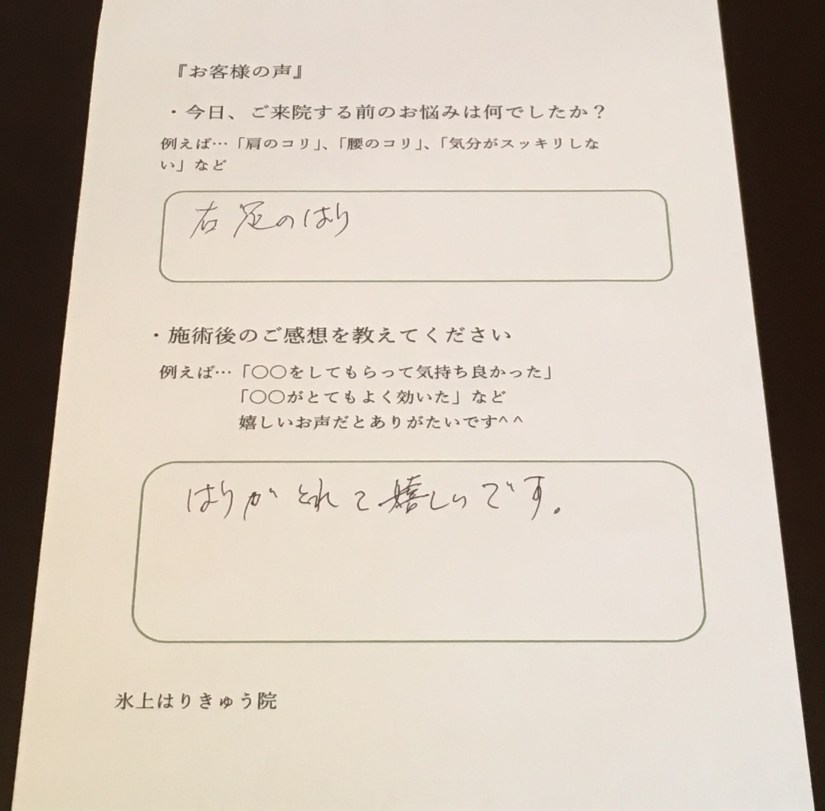 『お客様の声』
・今日、ご来院する前のお悩みは何でしたか？
例えば…「肩のコリ」、「腰のコリ」、「気分がスッキリしな
い」など
右足のはり
・施術後のご感想を教えてください
例えば…「〇〇をしてもらって気持ち良かった」
「〇〇がとてもよく効いた」など
嬉しいお声だとありがたいです^^
はりがとれて嬉しいです。
氷上はりきゅう院